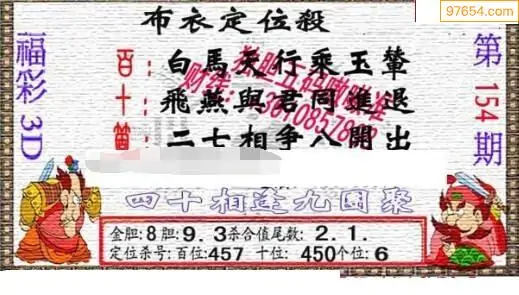 97654.com
布衣定位殺
福彩3D
第154期
百：白馬灰行乘玉輦
十：飛燕與君同進退
個：二七相爭八開出
四十相逢九團聚
金胆:8胆:9.3杀合值尾数:2.1.
定位杀号:百位:457 十位:450个位:6